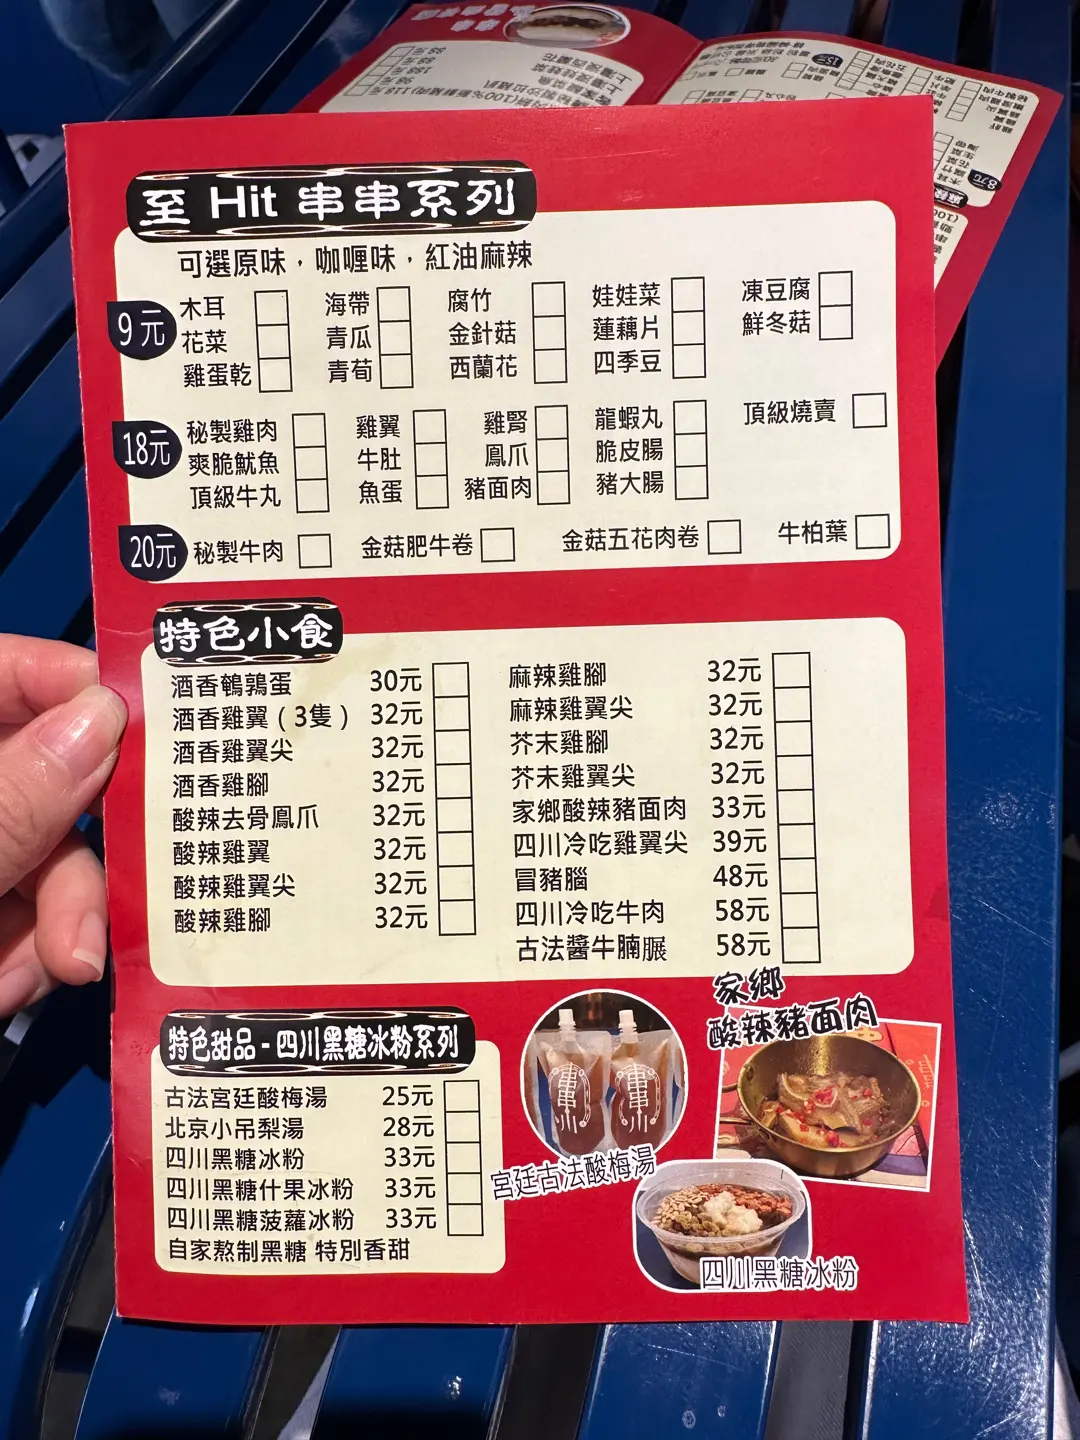 至 Hit 串串系列
可選原味，咖喱味，紅油麻辣
9元
木耳 海帶 腐竹 娃娃菜 凍豆腐
花菜 青瓜 金針菇 蓮藕片 鮮冬菇
雞蛋乾 青荀 西蘭花 四季豆
18元
秘製雞肉 雞翼 雞腎 龍蝦丸 頂級燒賣
爽脆魷魚 牛肚 鳳爪 脆皮腸
頂級牛丸 魚蛋 豬面肉 豬大腸
20元 秘製牛肉 金菇肥牛卷 金菇五花肉卷 牛柏葉
特色小食
酒香鵪鶉蛋 30元
酒香雞翼（3隻） 32元
酒香雞翼尖 32元
酒香雞腳 32元
酸辣去骨鳳爪 32元
酸辣雞翼 32元
酸辣雞翼尖 32元
酸辣雞腳 32元
麻辣雞腳 32元
麻辣雞翼尖 32元
芥末雞腳 32元
芥末雞翼尖 32元
家鄉酸辣豬面肉 33元
四川冷吃雞翼尖 39元
冒豬腦 48元
四川冷吃牛肉 58元
古法醬牛腩𦟌 58元
特色甜品 - 四川黑糖冰粉系列
古法宮廷酸梅湯 25元
北京小吊梨湯 28元
四川黑糖冰粉 33元
四川黑糖什果冰粉 33元
四川黑糖菠蘿冰粉 33元
自家熬制黑糖 特別香甜
串串川
串串川
宮廷古法酸梅湯
家鄉
酸辣豬面肉
四川黑糖冰粉